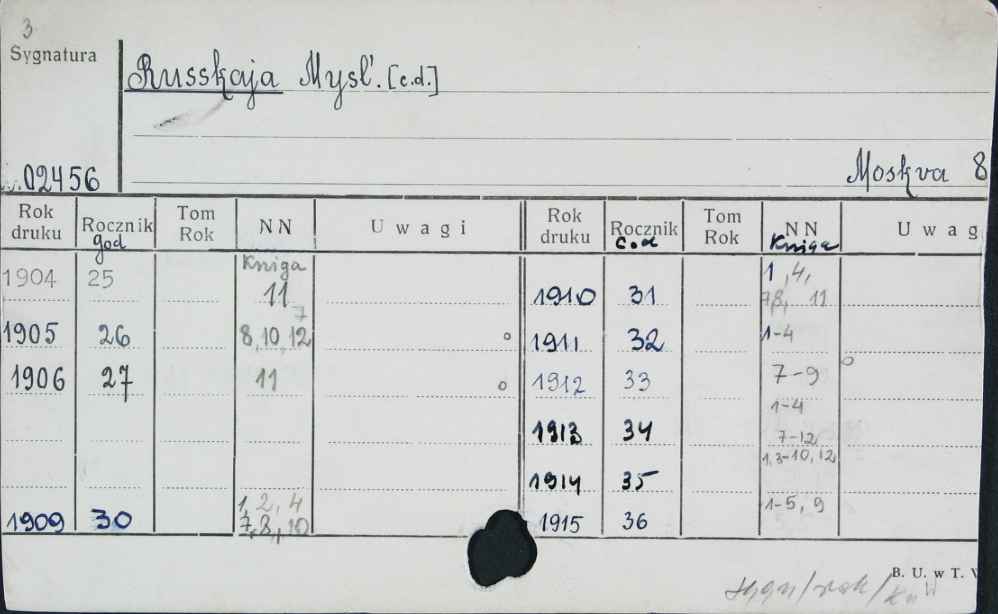 3
Sygnatura
Russkaja Mysl'. [c.d.]
02456
Moskva 8
Rok druku Rocznik god Tom Rok NN Uwagi Rok druku Rocznik c.d Tom Rok NN Kniga Uwag
Kniga
1904 25 11
1905 26 7 8, 10, 12
1906 27 11
1909 30 1, 2, 4 7, 8, 10
1910 31 1, 4, 7,8, 11
1911 32 1-4
1912 33 7-9
1913 34 1-4 7-12
1914 35 1,3-10, 12
1915 36 1-5, 9
B. U. w T.